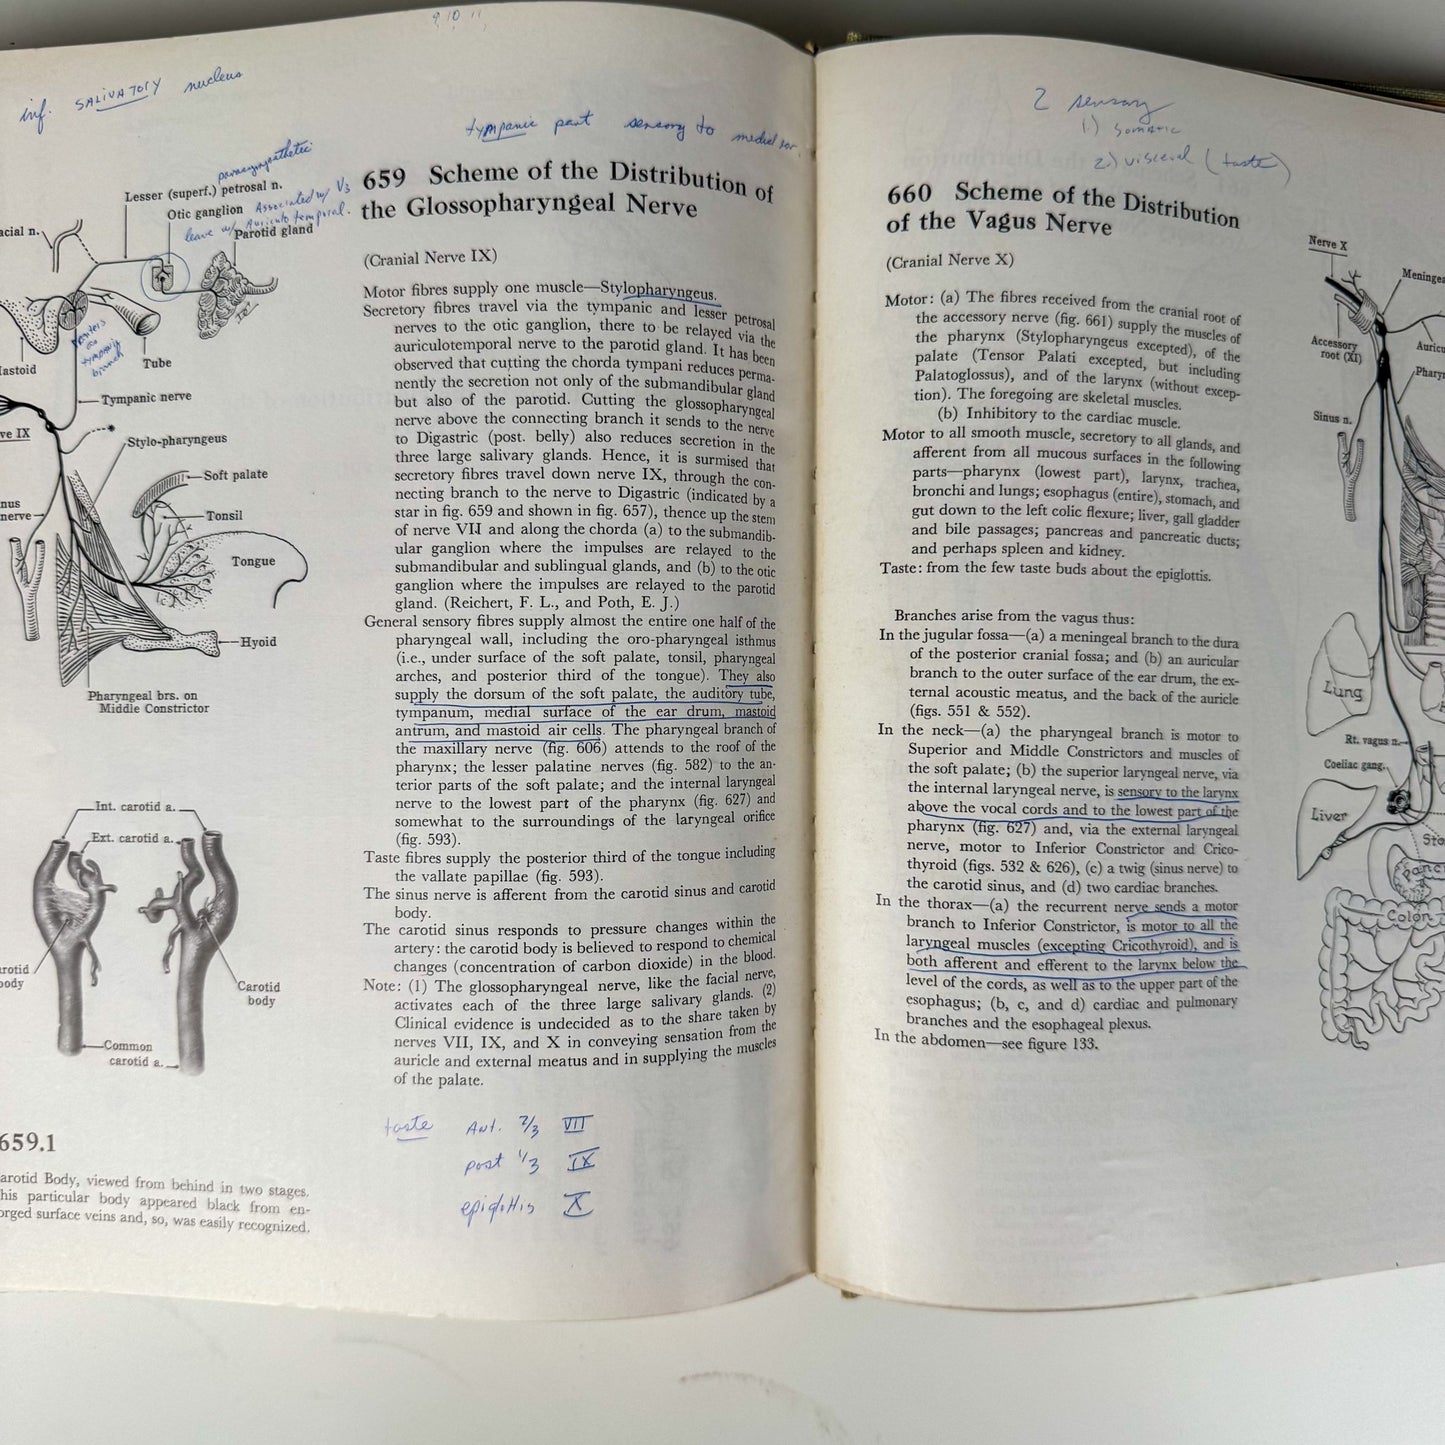 9 10 11
inf. SALIVATORY nucleus
parasympathetic
Lesser (superf.) petrosal n.
Otic ganglion Associated w/ V3
leave w/ Auriculo temporal.
Parotid gland
acial n.
Tube
astoid
Tympanic nerve
ve IX
Stylo-pharyngeus
Soft palate
nus
nerve
Tonsil
Tongue
Hyoid
Pharyngeal brs. on
Middle Constrictor
Int. carotid a.
Ext. carotid a.
arotid
ody
Carotid
body
Common
carotid a.
659.1
arotid Body, viewed from behind in two stages.
his particular body appeared black from en-
orged surface veins and, so, was easily recognized.
tympanic part sensory to medial
659 Scheme of the Distribution of
the Glossopharyngeal Nerve
(Cranial Nerve IX)
Motor fibres supply one muscle—Stylopharyngeus.
Secretory fibres travel via the tympanic and lesser petrosal
nerves to the otic ganglion, there to be relayed via the
auriculotemporal nerve to the parotid gland. It has been
observed that cutting the chorda tympani reduces perma-
nently the secretion not only of the submandibular gland
but also of the parotid. Cutting the glossopharyngeal
nerve above the connecting branch it sends to the nerve
to Digastric (post. belly) also reduces secretion in the
three large salivary glands. Hence, it is surmised that
secretory fibres travel down nerve IX, through the con-
necting branch to the nerve to Digastric (indicated by a
star in fig. 659 and shown in fig. 657), thence up the stem
of nerve VII and along the chorda (a) to the submandib-
ular ganglion where the impulses are relayed to the
submandibular and sublingual glands, and (b) to the otic
ganglion where the impulses are relayed to the parotid
gland. (Reichert, F. L., and Poth, E. J.)
General sensory fibres supply almost the entire one half of the
pharyngeal wall, including the oro-pharyngeal isthmus
(i.e., under surface of the soft palate, tonsil, pharyngeal
arches, and posterior third of the tongue). They also
supply the dorsum of the soft palate, the auditory tube,
tympanum, medial surface of the ear drum, mastoid
antrum, and mastoid air cells. The pharyngeal branch of
the maxillary nerve (fig. 606) attends to the roof of the
pharynx; the lesser palatine nerves (fig. 582) to the an-
terior parts of the soft palate; and the internal laryngeal
nerve to the lowest part of the pharynx (fig. 627) and
somewhat to the surroundings of the laryngeal orifice
(fig. 593).
Taste fibres supply the posterior third of the tongue including
the vallate papillae (fig. 593).
The sinus nerve is afferent from the carotid sinus and carotid
body.
The carotid sinus responds to pressure changes within the
artery: the carotid body is believed to respond to chemical
changes (concentration of carbon dioxide) in the blood.
Note: (1) The glossopharyngeal nerve, like the facial nerve,
activates each of the three large salivary glands. (2)
Clinical evidence is undecided as to the share taken by
nerves VII, IX, and X in conveying sensation from the
auricle and external meatus and in supplying the muscles
of the palate.
taste Ant. 2/3 VII
post 1/3 IX
epiglottis X
2 sensory
1) somatic
2) visceral (taste)
660 Scheme of the Distribution
of the Vagus Nerve
(Cranial Nerve X)
Motor: (a) The fibres received from the cranial root of
the accessory nerve (fig. 661) supply the muscles of
the pharynx (Stylopharyngeus excepted), of the
palate (Tensor Palati excepted, but including
Palatoglossus), and of the larynx (without excep-
tion). The foregoing are skeletal muscles.
(b) Inhibitory to the cardiac muscle.
Motor to all smooth muscle, secretory to all glands, and
afferent from all mucous surfaces in the following
parts—pharynx (lowest part), larynx, trachea,
bronchi and lungs; esophagus (entire), stomach, and
gut down to the left colic flexure; liver, gall gladder
and bile passages; pancreas and pancreatic ducts;
and perhaps spleen and kidney.
Taste: from the few taste buds about the epiglottis.
Branches arise from the vagus thus:
In the jugular fossa—(a) a meningeal branch to the dura
of the posterior cranial fossa; and (b) an auricular
branch to the outer surface of the ear drum, the ex-
ternal acoustic meatus, and the back of the auricle
(figs. 551 & 552).
In the neck—(a) the pharyngeal branch is motor to
Superior and Middle Constrictors and muscles of
the soft palate; (b) the superior laryngeal nerve, via
the internal laryngeal nerve, is sensory to the larynx
above the vocal cords and to the lowest part of the
pharynx (fig. 627) and, via the external laryngeal
nerve, motor to Inferior Constrictor and Crico-
thyroid (figs. 532 & 626), (c) a twig (sinus nerve) to
the carotid sinus, and (d) two cardiac branches.
In the thorax—(a) the recurrent nerve sends a motor
branch to Inferior Constrictor, is motor to all the
laryngeal muscles (excepting Cricothyroid), and is
both afferent and efferent to the larynx below the
level of the cords, as well as to the upper part of the
esophagus; (b, c, and d) cardiac and pulmonary
branches and the esophageal plexus.
In the abdomen—see figure 133.
Nerve X
Meninge
Accessory
root (XI)
Auricu
Pharyn
Sinus n.
Lung
H
Rt. vagus n.
Coeliac gang.
Liver
Sto
Panc
Colon